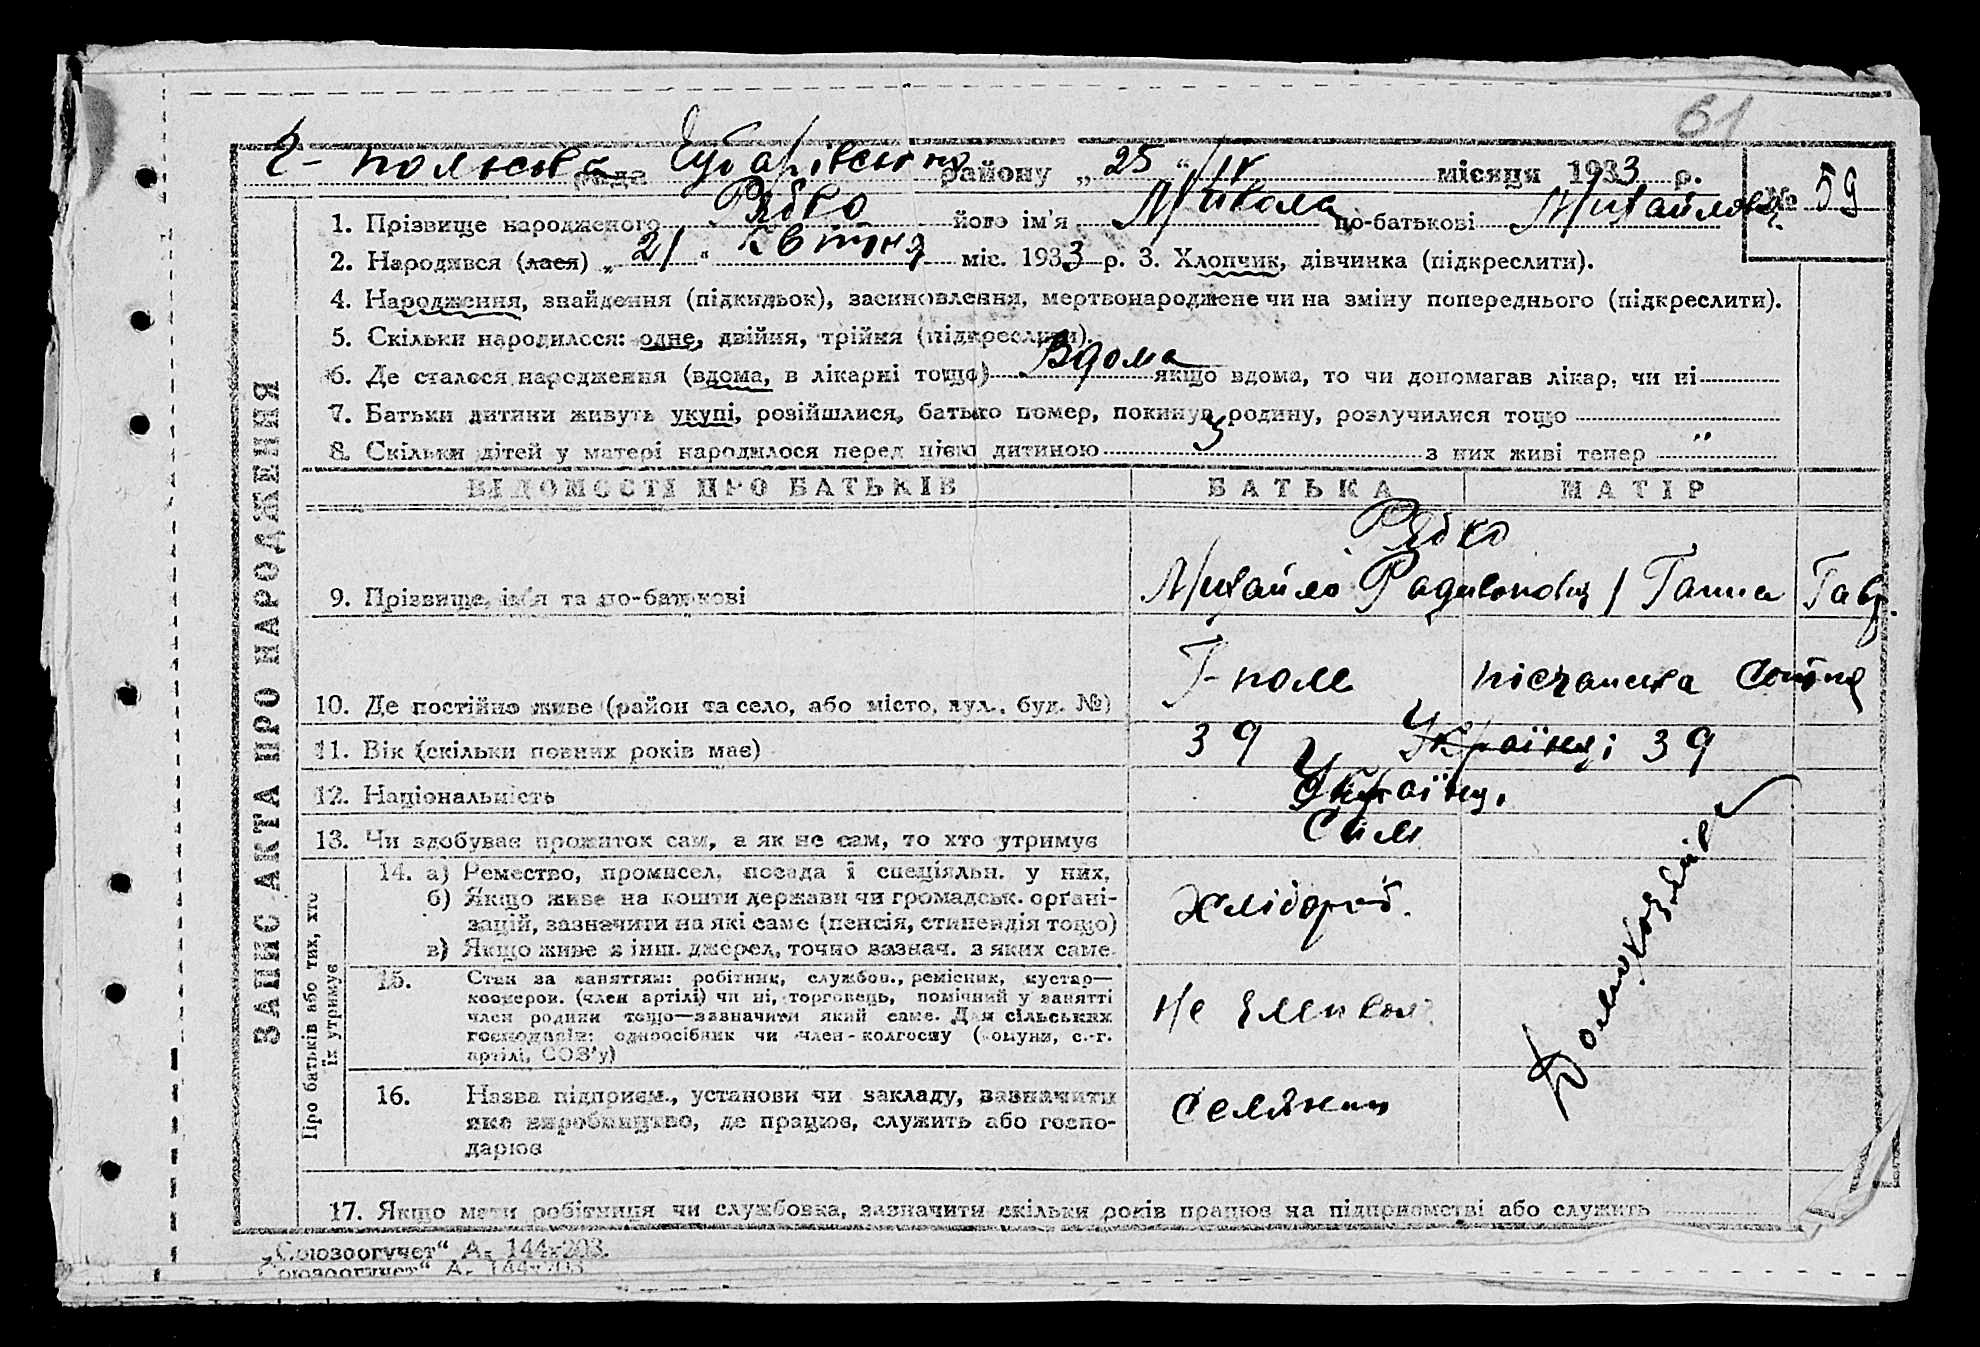 61
Г-польська рада Чубарівського району „25“ IV місяця 1933 р. № 59
ЗАПИС АКТА ПРО НАРОДЖЕННЯ
1. Прізвище народженого Рябко його ім'я Микола по-батькові Михайлович
2. Народився (лася) „21“ квітня міс. 1933 р. 3. Хлопчик, дівчинка (підкреслити).
4. Народження, знайдення (підкидьок), засиновлення, мертвонароджене чи на зміну попереднього (підкреслити).
5. Скільки народилося: одне, двійня, трійня (підкреслити).
6. Де сталося народження (вдома, в лікарні тощо) Вдома якщо вдома, то чи допомагав лікар, чи ні
7. Батьки дитини живуть укупі, розійшлися, батько помер, покинув родину, розлучилися тощо
8. Скільки дітей у матері народилося перед цією дитиною 3 з них живі тепер "
ВІДОМОСТІ ПРО БАТЬКІВ БАТЬКА МАТІР
Рябко
9. Прізвище, ім'я та по-батькові Михайло Радивонович / Ганна Гавр.
10. Де постійно живе (район та село, або місто, вул., буд. №) Г-поле піщанська сотня
11. Вік (скільки повних років має) 39 Українці 39
12. Національність Українці
13. Чи здобуває прожиток сам, а як не сам, то хто утримує Сам
Про батьків або тих, хто їх утримує
14. а) Ремество, промисел, посада і спеціяльн. у них.
б) Якщо живе на кошти держави чи громадськ. організацій, зазначити на які саме (пенсія, стипендія тощо)
в) Якщо живе з інш. джерел, точно зазнач. з яких саме.
хлібороб.
15. Стан за заняттям: робітник, службов., ремісник, кустар—
кооперов. (член артілі) чи ні, торговець, помічний у занятті
член родини тощо—зазначити який саме. Для сільських
господарів: одноосібник чи член-колгоспу (комуни, с.-г.
артілі, СОЗ'у)
Не
16. Назва підприєм., установи чи закладу, зазначити
яке виробництво, де працює, служить або господарює
Селянин
17. Якщо мати робітниця чи службовка, зазначити скільки років працює на підприємстві або служить
„Союзоргучет“ А. 144х203.
„Союзоргучет“ А. 144х203